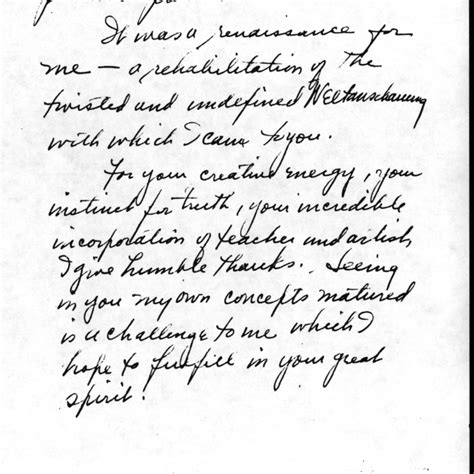 It was a renaissance for
me — a rehabilitation of the
twisted and undefined Weltanschauung
with which I came to you.
For your creative energy, your
instinct for truth, your incredible
incorporation of teacher and artist
I give humble thanks. Seeing
in you my own concepts matured
is a challenge to me which I
hope to fulfill in your great
spirit.